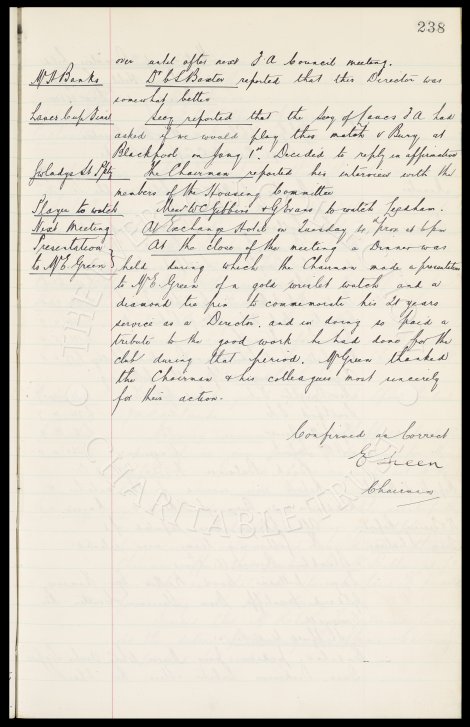 238
over until after next F A Council meeting.
Mr A Banks Dr C S Baxter reported that this Director was
somewhat better
Lancs Cup Final Secy reported that the Secy of Lancs F A had
asked if we would play this match v Bury, at
Blackpool on Jany 1st. Decided to reply in affirmative
Gwladys St Ppty The Chairman reported his interview with the
members of the Housing Committee
Player to watch Messrs W C Gibbins & G Evans to watch
Next Meeting At Exchange Hotel on Tuesday prox at 6pm
Presentation At the close of the meeting a Dinner was
to Mr E. Green held during which the Chairman made a presentation
to Mr E. Green of a gold wristlet watch and a
diamond tie pin to commemorate his 21 years
service as a Director, and in doing so paid a
tribute to the good work he had done for the
club during that period. Mr Green thanked
the Chairman & his colleagues most sincerely
for their action.
Confirmed as Correct
E Green
Chairman
CHARITABLE